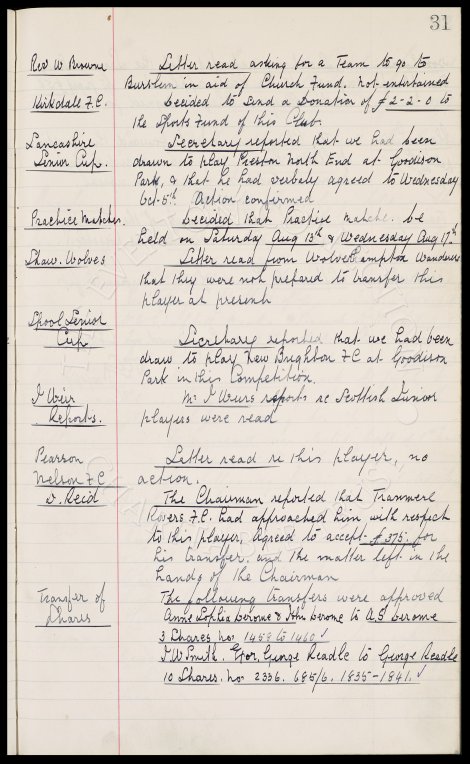 31
Rev W Browne
Letter read asking for a Team to go to
Burslem in aid of Church Fund. Not entertained
Kirkdale F.C.
Decided to send a Donation of £2-2-0 to
the Sports Fund of this Club.
Lancashire
Senior Cup.
Secretary reported that we had been
drawn to play Preston North End at Goodison
Park, & that he had verbaly agreed to Wednesday
Oct. 5th. Action confirmed
Practice Matches.
Decided that Practise Matche. be
held on Saturday Aug 13th & Wednesday Aug 17th
Shaw. Wolves
Letter read from Wolverhampton Wanderers
that they were not prepared to transfer this
player at present
L'pool Senior
Cup
Secretary reported that we had been
draw to play New Brighton F.C at Goodison
Park in this Competition.
J Weir
Reports.
Mr J Weirs reports re Scottish Junior
players were read
Pearson
Nelson F.C
Letter read re this player, no
action.
D. Reid
The Chairman reported that Tranmere
Rovers F.C. had approached him with respect
to this player, Agreed to accept £375. for
his transfer. and the matter left in the
hands of the Chairman
Transfer of
Shares
The following transfers were approved
Anne Sophia & to A.S
3 Shares no. 1458 to 1460
J. W Smith. Exor, George Readle to George Readle
10 Shares. no. 2336. 685/6. 1835-1841.